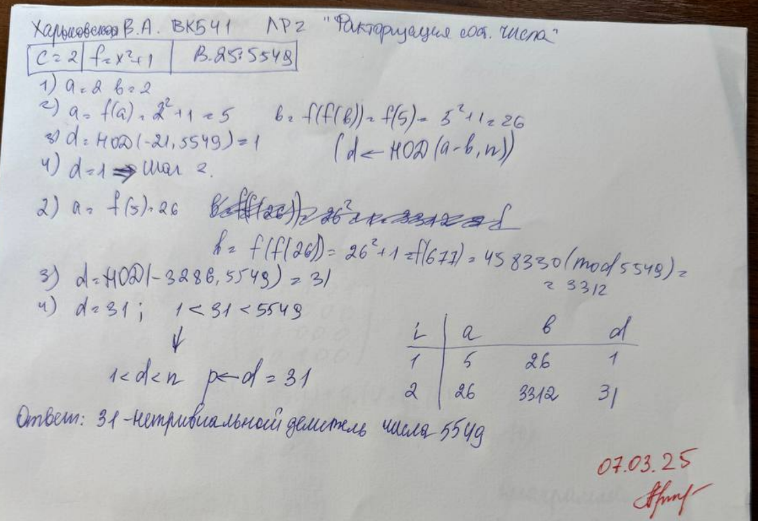 Харьковская В.А. ВК541 ЛР2 "Факторизация сост. числа"
c=2 f=x²+1 В.25:5549
1) a=2 b=2
2) a=f(a)=2²+1=5 b=f(f(b))=f(5)=5²+1=26
3) d=НОД(-21,5549)=1 (d←НОД(a-b,n))
4) d=1 ⇒ Шаг 2.
2) a=f(5)=26
b=f(f(26))=26²+1=f(677)=458330(mod5549)=
=3312
3) d=НОД(-3286,5549)=31
4) d=31; 1<31<5549
↓
1<d<n p←d=31
i a b d
1 5 26 1
2 26 3312 31
Ответ: 31-нетривиальный делитель числа 5549
07.03.25